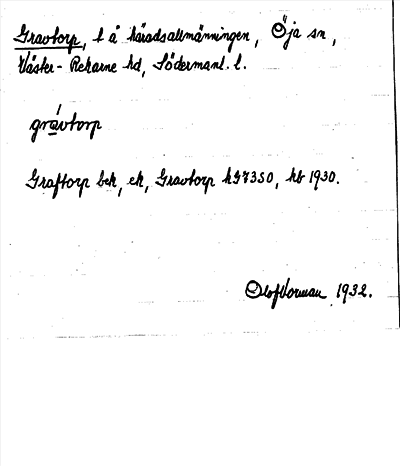 Gravtorp, t å häradsallmänningen, Öja sn,
Väster-Rekarne hd, Södermanl. l.
gràvtorp
Graftorp bek, ek, Gravtorp kG7350, hb 1930.
Olof Vorman 1932.